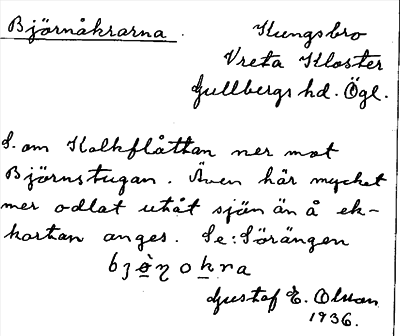 Björnåkrarna. Kungsbro
Vreta Kloster
Gullbergs hd. Ögl.
S. om Kalkflåttan ner mot
Björnstugan. Även här mycket
mer odlat utåt sjön än å ek-
kartan anges. Se: Sörängen
Gustaf E. Olsson
1936.